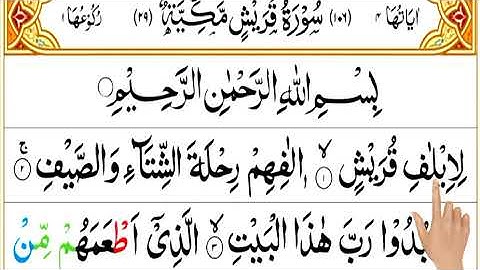 اٰیَاتُهَا ۴ (۱۰۶) سُوْرَةُ قُرَیْشٍ مَّكِّیَّةٌ (۲۹) رُكُوْعُهَا ۱
بِسْمِ اللّٰهِ الرَّحْمٰنِ الرَّحِیْمِ
لِاِیْلٰفِ قُرَیْشٍ ۙ﴿۱﴾ اٖلٰفِهِمْ رِحْلَةَ الشِّتَآءِ وَالصَّیْفِ ۚ﴿۲﴾
بُدُوْا رَبَّ هٰذَا الْبَیْتِ ۙ﴿۳﴾ الَّذِیْۤ اَطْعَمَهُمْ مِّنْ